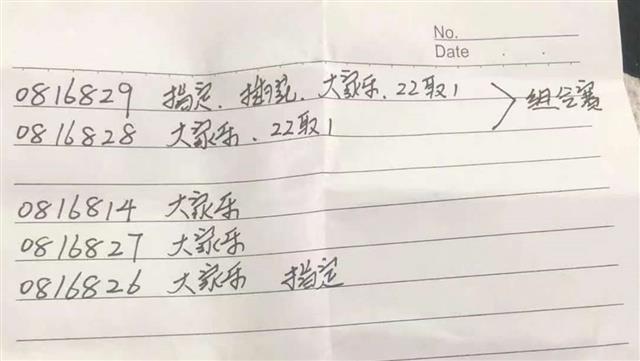 No.
Date
0816829 指定、排说、大家乐、22取1
0816828 大家乐、22取1
组合赛
0816814 大家乐
0816827 大家乐
0816826 大家乐 指定